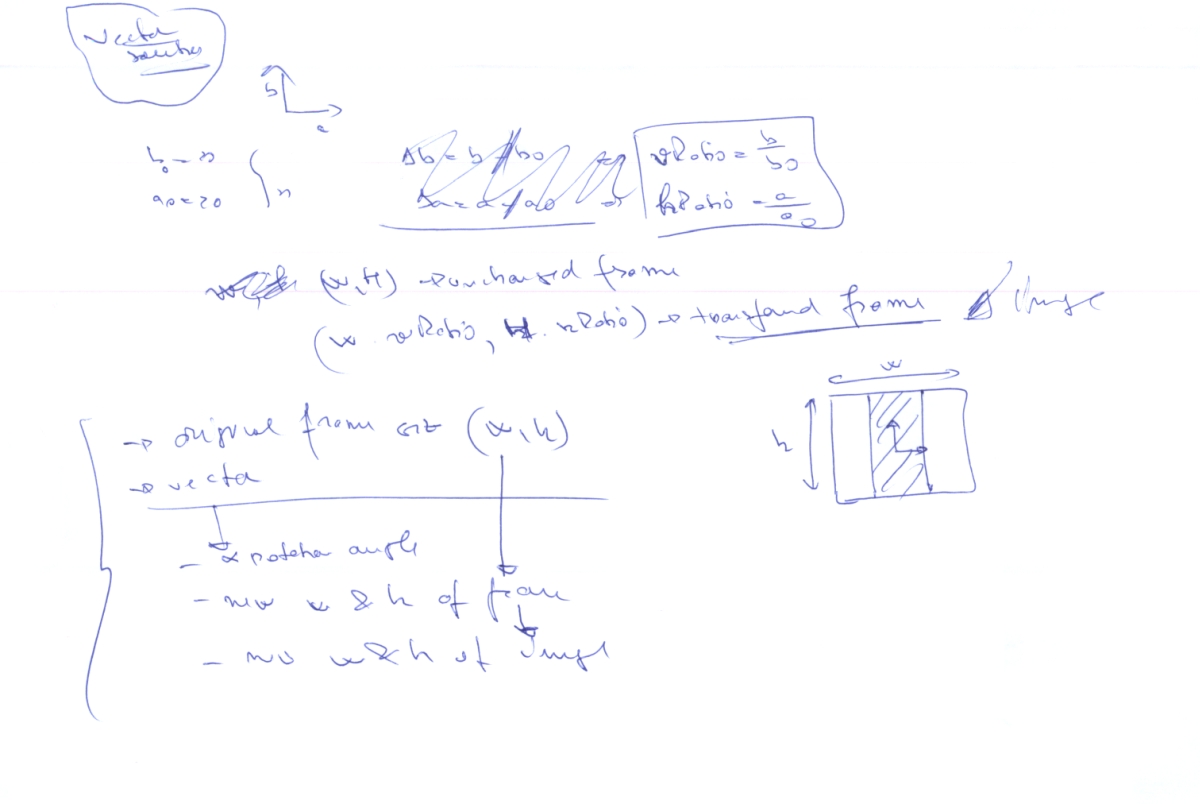 Vector
b
a
b₀ = n
a₀ = 20
n
Δb = b / b₀
Δa = a / a₀
vRatio = b / b₀
hRatio = a / a₀
(w, H) → purchased frame
(w . vRatio, H . hRatio) → transfand frame Image
w
h
→ original frame size (w, h)
→ vector
- α rotation angle
- new w & h of frame
- new w & h of Image